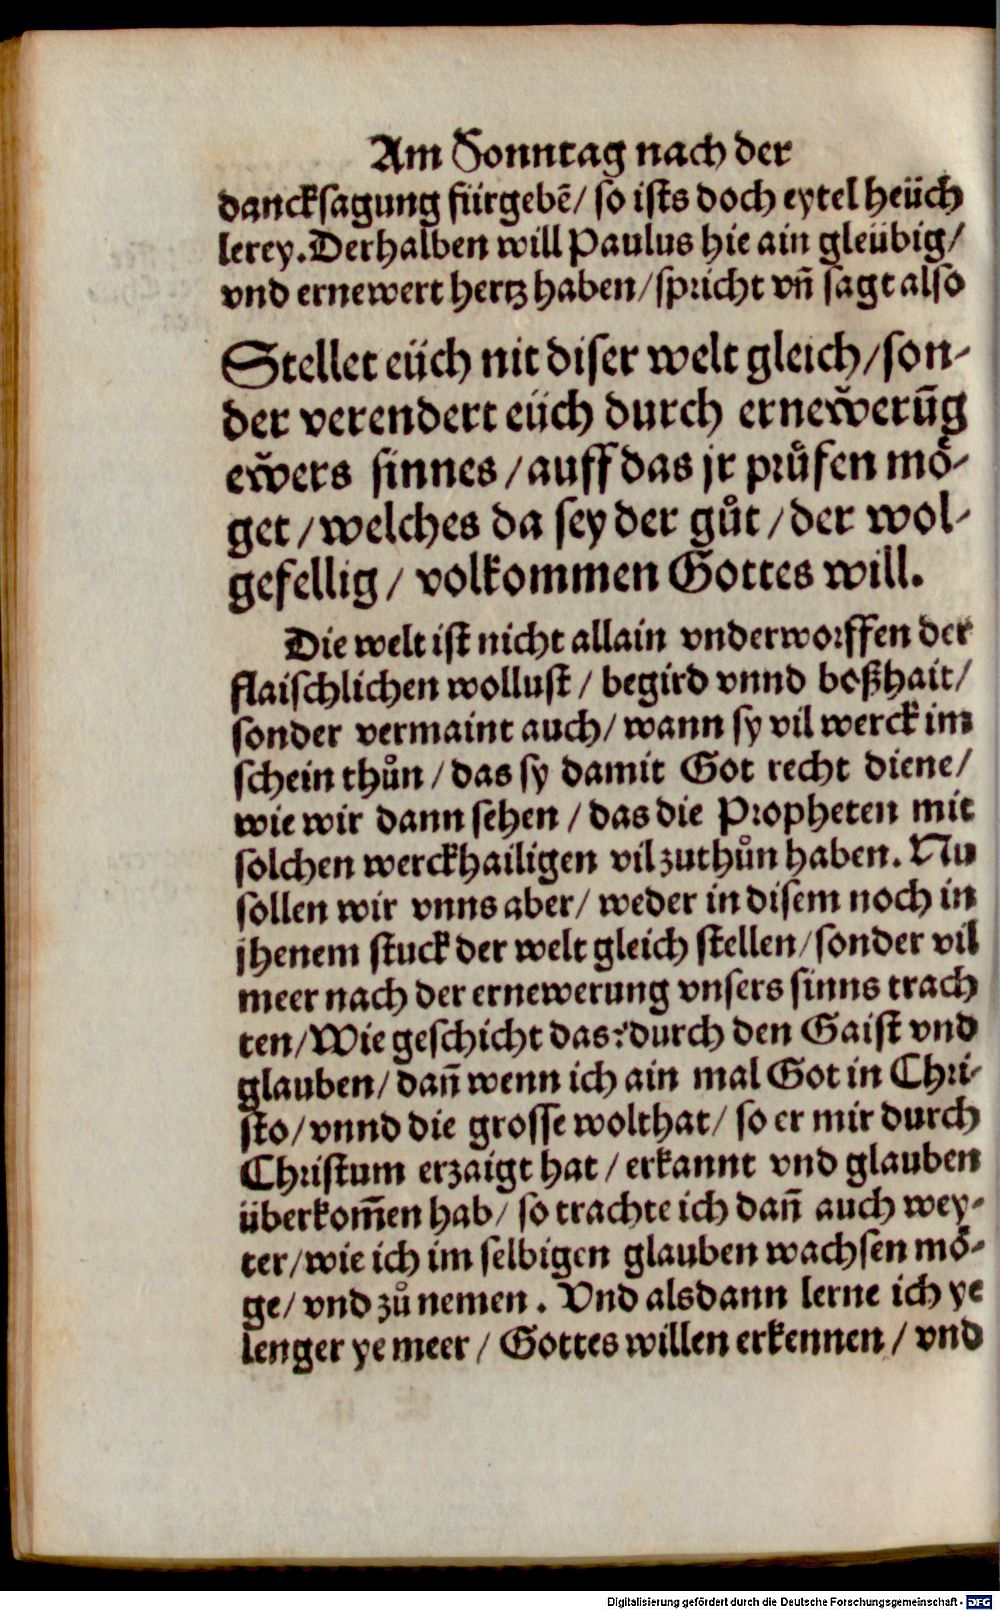 Am Sonntag nach der
dancksagung fürgebē/ so ists doch eytel heüch
lerey. Derhalben will Paulus hie ain gleübig/
vnd ernewert hertz haben/ spricht vn̄ sagt also
Stellet eüch nit diser welt gleich/ son-
der verendert eüch durch ernew̆erūg
ew̆ers sinnes/ auff das jr průfen mö-
get/ welches da sey der gůt/ der wol-
gefellig/ volkommen Gottes will.
Die welt ist nicht allain vnderworffen der
flaischlichen wollust/ begird vnnd boßhait/
sonder vermaint auch/ wann sy vil werck im
schein thůn/ das sy damit Got recht diene/
wie wir dann sehen/ das die Propheten mit
solchen werckhailigen vil zuthůn haben. Nu
sollen wir vnns aber/ weder in disem noch in
jhenem stuck der welt gleich stellen/ sonder vil
meer nach der ernewerung vnsers sinns trach
ten/ Wie geschicht das? durch den Gaist vnd
glauben/ dan̄ wenn ich ain mal Got in Chri-
sto/ vnnd die grosse wolthat/ so er mir durch
Christum erzaigt hat/ erkannt vnd glauben
überkom̄en hab/ so trachte ich dan̄ auch wey-
ter/ wie ich im selbigen glauben wachsen mö-
ge/ vnd zů nemen. Vnd alsdann lerne ich ye
lenger ye meer/ Gottes willen erkennen/ vnd
Digitalisierung gefördert durch die Deutsche Forschungsgemeinschaft - DFG